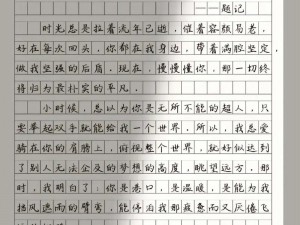 ——题记
时光总是拉着流年已逝，催着容颜易老，
好在每次回头，你都在我身边，带着满腔坚定，
做我坚强的后盾，现在，慢慢懂你，那一切终
将归为最朴实的平凡。
小时候，总以为你是无所不能的超人，只
要举起双手就能给我一个世界，所以，我总爱
骑在你的肩膀上，俯视整个世界，就好似达到
了别人无法企及的梦想的高度，眺望远方，那
时，我明白了，你是港口，是温暖，是能为我
挡风遮雨的臂弯，能停泊我那疲惫而又厌倦飞